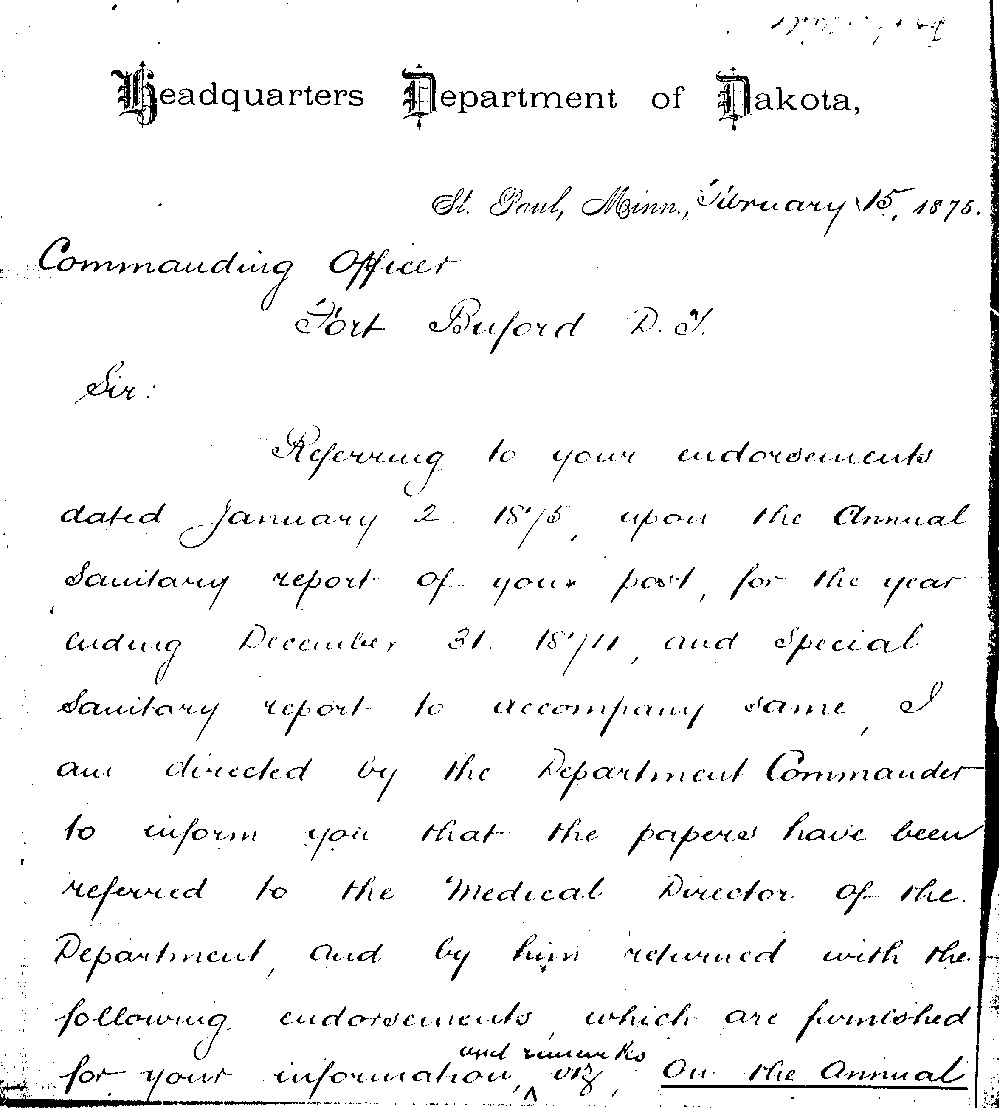 Headquarters Department of Dakota,
St. Paul, Minn., February 15, 1875.
Commanding Officer
Fort Buford D. T.
Sir:
Referring to your endorsements
dated January 2 1875, upon the Annual
Sanitary report of your post, for the year
ending December 31. 1874, and Special
Sanitary report to accompany same, I
am directed by the Department Commander
to inform you that the papers have been
referred to the Medical Director of the
Department, and by him returned with the
following endorsements, which are furnished
and remarks
for your information, viz, On the Annual